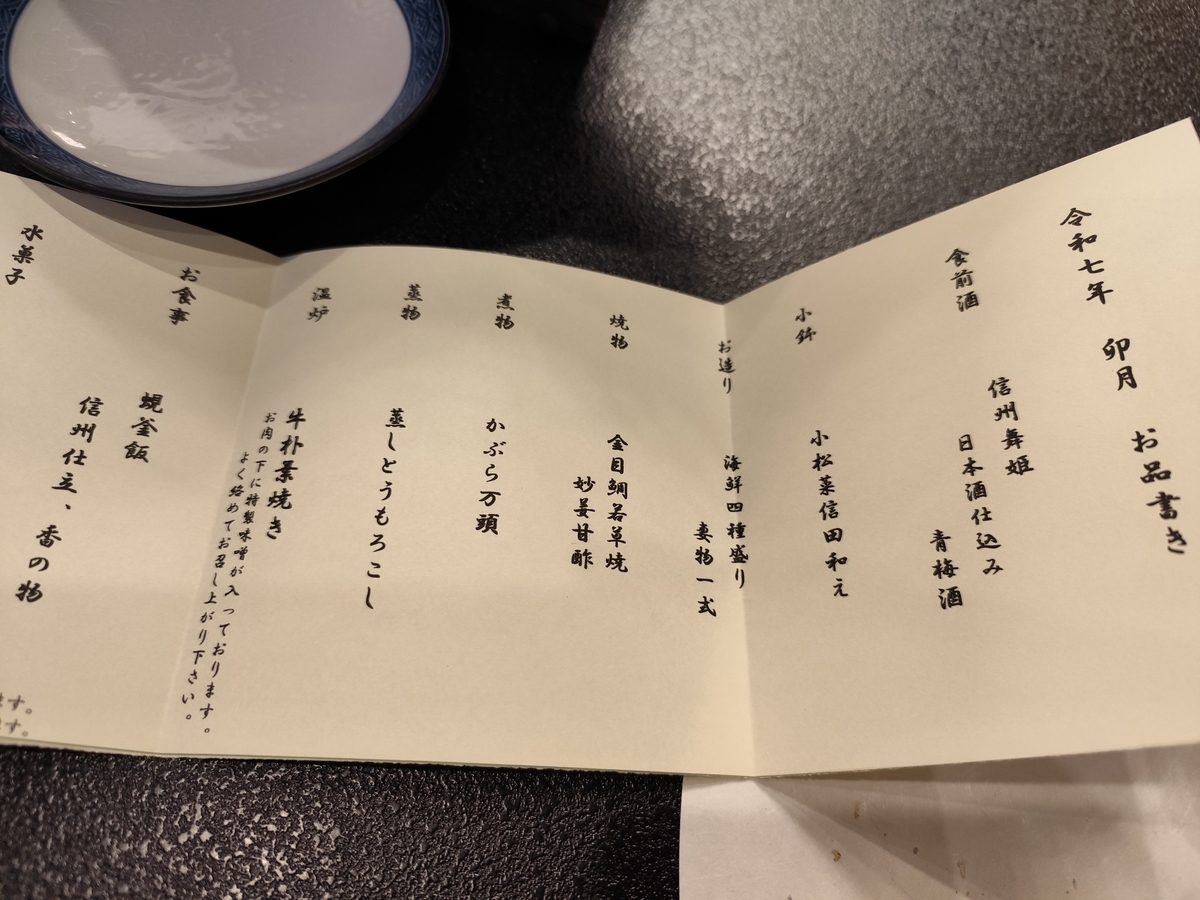 令和七年 卯月 お品書き
食前酒
信州舞姫
日本酒仕込み
青梅酒
小鉢
小松菜信田和え
お造り
海鮮四種盛り
妻物一式
焼物
金目鯛若草焼
妙姜甘酢
煮物
かぶら万頭
蒸物
蒸しとうもろこし
温炉
牛朴葉焼き
お肉の下に特製味噌が入っております。
よく絡めてお召し上がり下さい。
お食事
蜆釜飯
信州仕立、香の物
水菓子
ます。
ます。